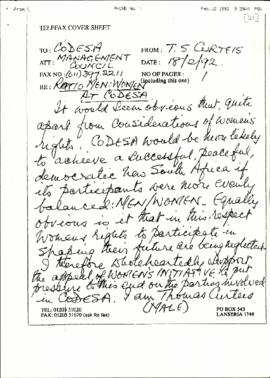 TELEFAX COVER SHEET
TO: CODESA FROM: T. S CURTEIS
ATT: MANAGEMENT COUNCIL DATE: 18/2/92.
FAX NO: (011) 397 2211 NO OF PAGES: 1
(including this one)
RE: RATIO MEN:WOMEN
AT CODESA
It would seem obvious that, quite
apart from considerations of womens
rights, CODESA would be more likely
to achieve a successful, peaceful,
democratic new South Africa if
its participants were more evenly
balanced: MEN/WOMEN. Equally
obvious is it that in this respect
Womens rights to participate in
shaping their future are being neglected.
I therefore wholeheartedly support
the appeal of WOMEN'S INITIATIVE to put
pressure to this end on the parties involved
in CODESA. I am Thomas Curteis
(MALE)
TEL: 01205 31020
FAX: 01205 31070 (ask for fax)
PO BOX 543
LANSERIA 1748